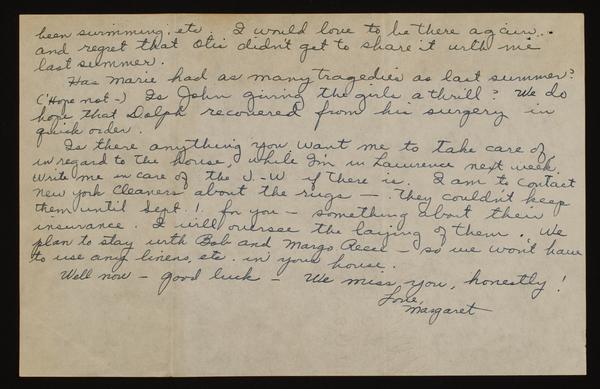 been swimming, etc. I would love to be there again..
and regret that Otis didn't get to share it with me
last summer.
Has Marie had as many tragedies as last summer?
('Hope not-) Is John giving the girls a thrill? We do
hope that Dolph recovered from his surgery in
quick order.
Is there anything you want me to take care of,
in regard to the house, while I'm in Lawrence next week.
Write me in care of the J.-W if there is. I am to contact
New York Cleaners about the rugs — they couldn't keep
them until Sept. 1. for you — something about their
insurance. I will oversee the laying of them. We
plan to stay with Bob and Margo Reece — so we won't have
to use any linens, etc. in your house.
Well now — good luck — We miss you, honestly!
Love,
Margaret